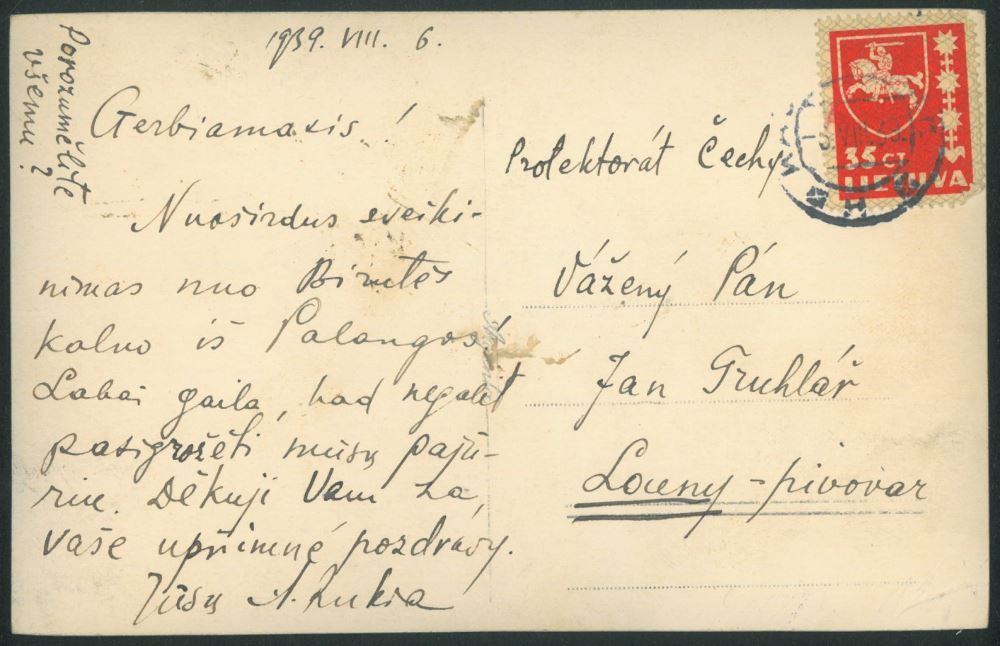 1939. VIII. 6.
Porozumělite
všemu ?
Gerbiamasis !
Nuoširdus sveiki-
nimas nuo Birutės
kalno iš Palangos!
Labai gaila, kad negalit
pasigrožėti mūsų pajū-
riu. Děkuji Vam za
vaše upřimné pozdravy.
Jūsų A.
Protektorát Čechy
Vážený Pán
Jan Truhlář
Louny - pivovar
35 CT
LIETUVA